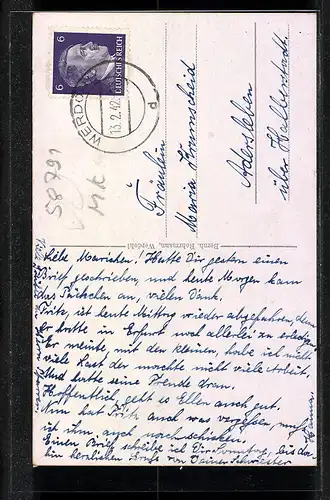 6
6
DEUTSCHES REICH
WERDOHL
13.2.42
d
Fräulein
Maria Krumscheid
Adersleben
über Halberstadt.
58791
MK
Bernh. Rohrmann, Werdohl
Liebe Mariechen! Hatte Dir gestern einen
Brief geschrieben, und heute Morgen kam
das Päckchen an, vielen Dank.
Fritz, ist heute Mittag wieder abgefahren, denn
er hatte in Erfurt noch allerlei zu erledigen
Er meinte mit den kleinen, habe ich nicht
viele Last der machte nicht viele Arbeit.
Und hatte seine Freude dran.
Hoffentlich, geht es Ellen auch gut.
Nun hat Fritz auch was vergessen, muß
ich ihm auch noch schicken.
Einen Brief schreibe ich Dir Sonntag, bis da-
hin herzlichen Grüße von Deiner Schwester
Hanna